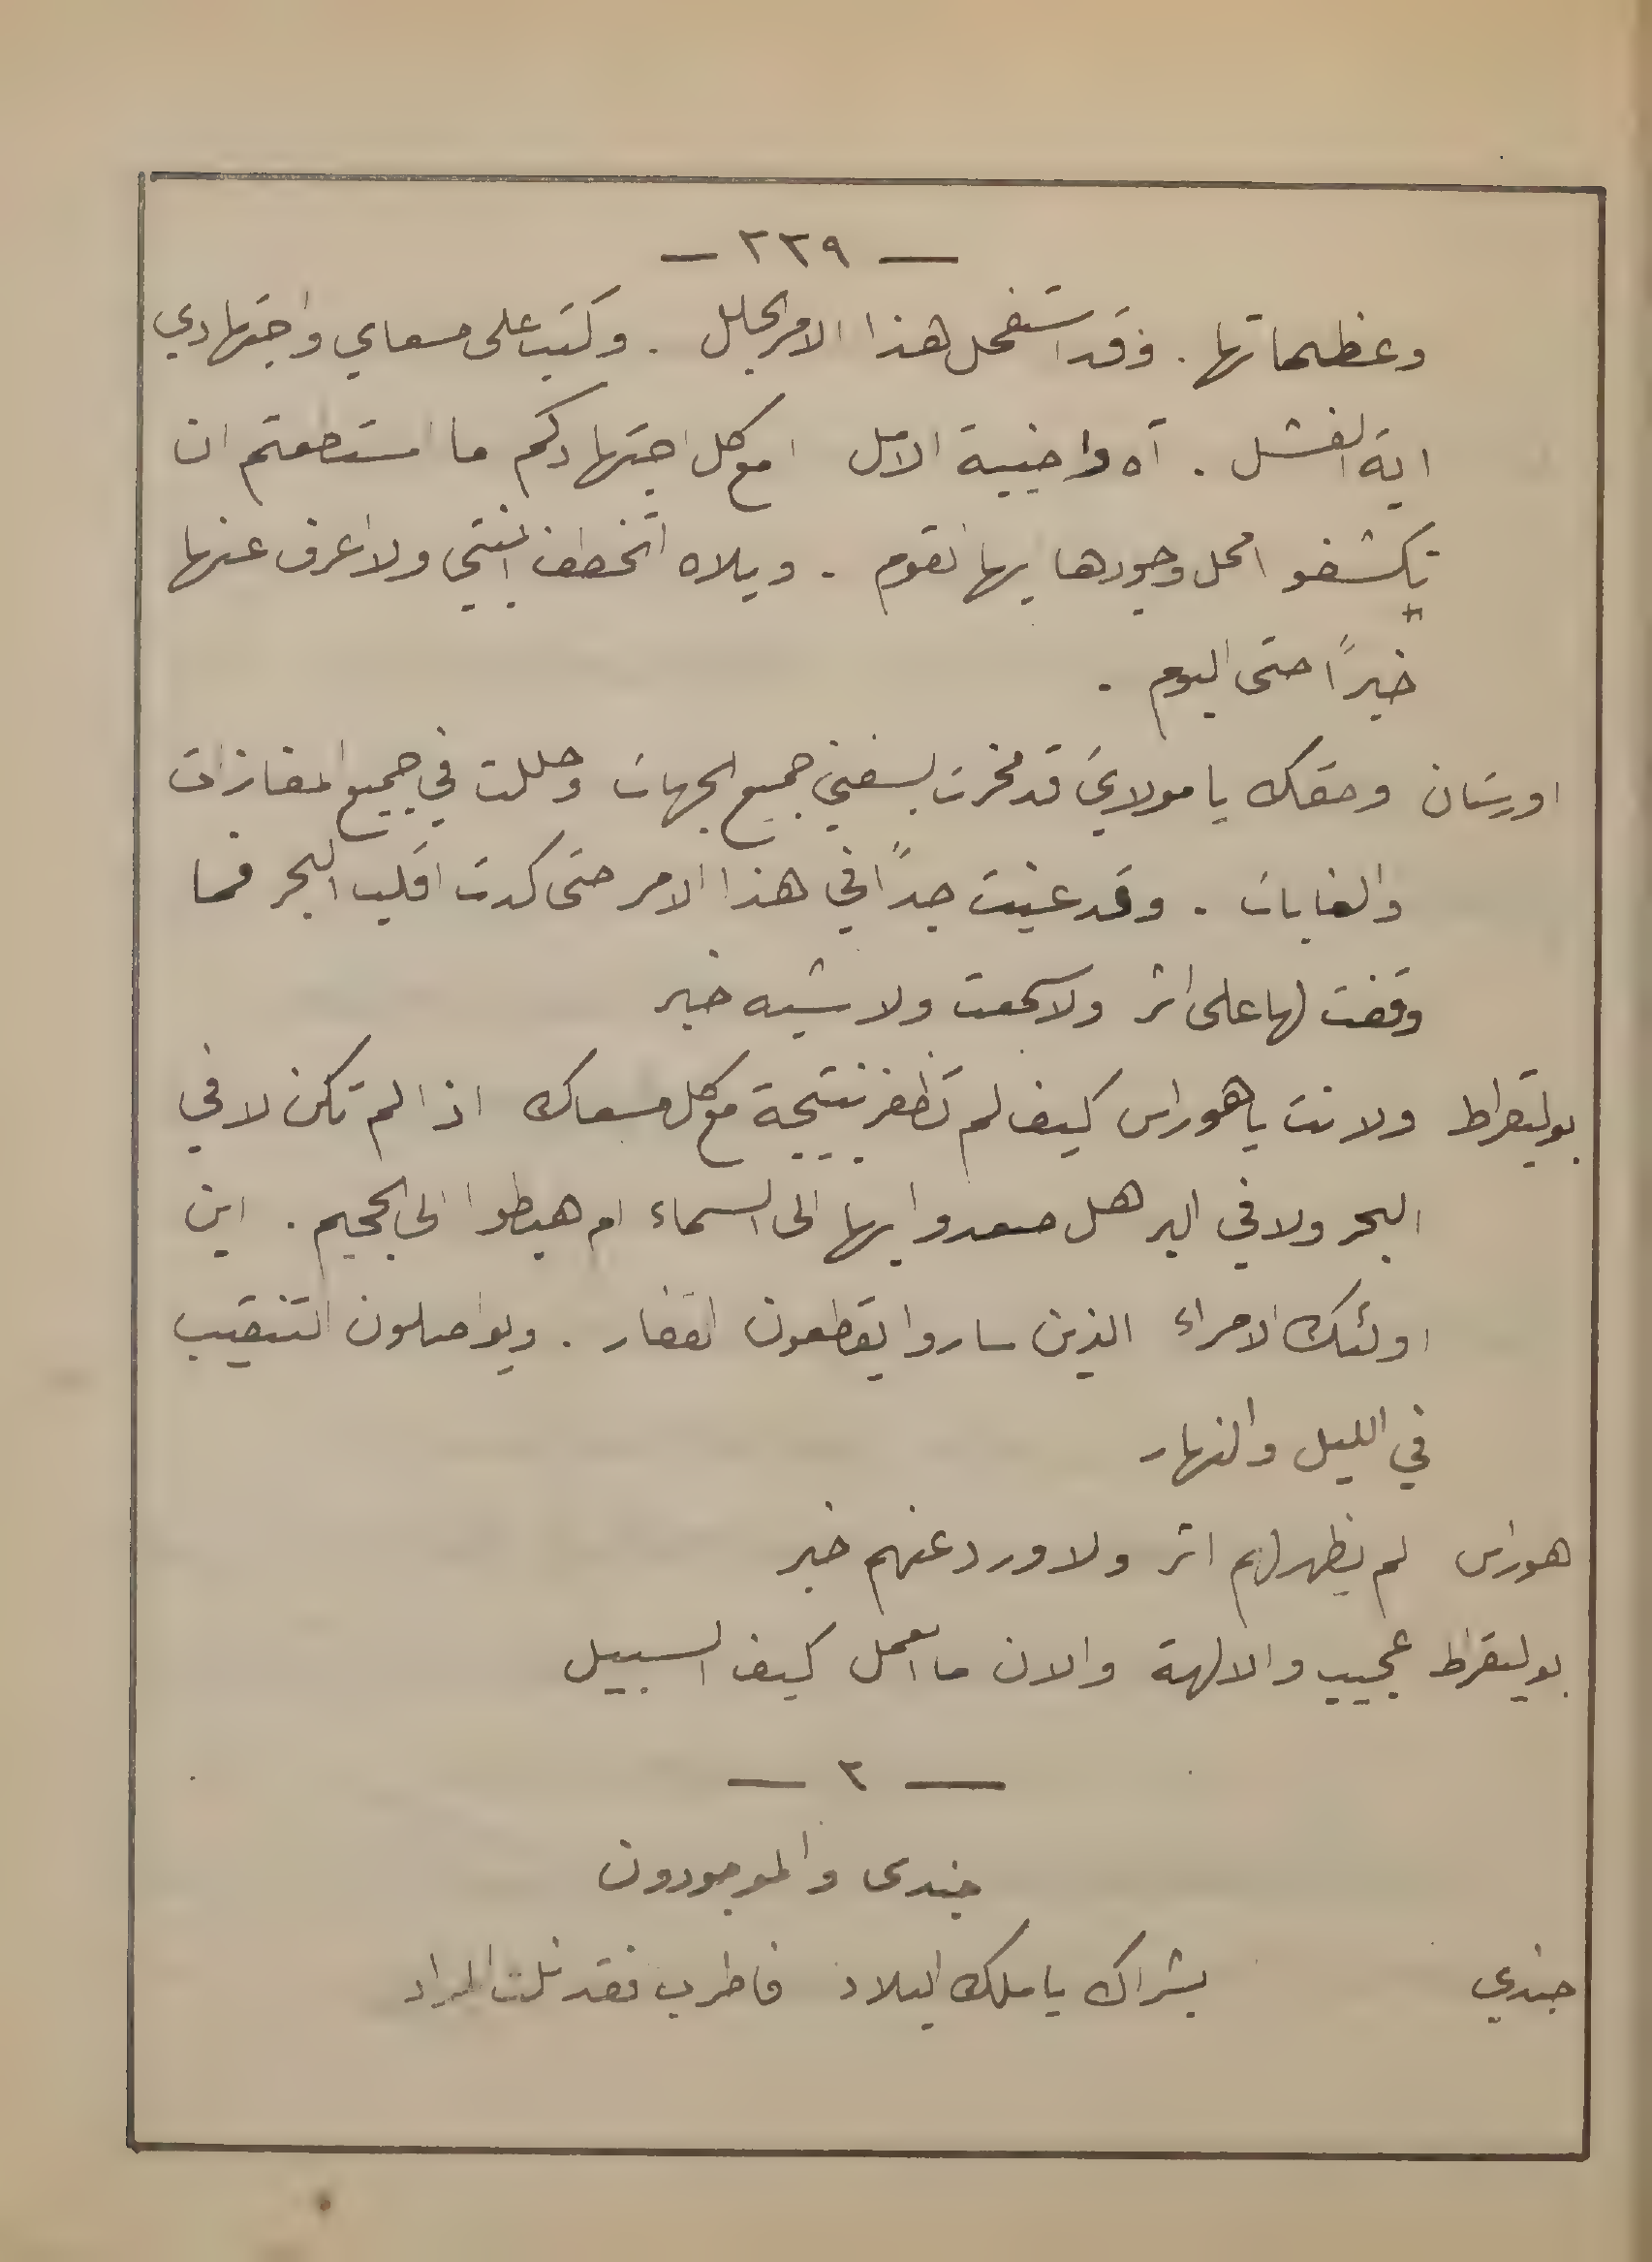 — ٢٣٩ —
وعظماتها . وقد استفحل هذا الامر الجلل . وكتب على مسعاي واجتهادي
اية الفشل . آه واخيبة الامل امع كل اجتهادكم ما استطعتم ان
تكشفو امحل وجودها يها القوم . ويلاه اتخطف ابنتي ولا اعرف عنها
خبراً حتى اليوم .
اورستان وحقك يا مولاي قد مخرت بسفيني جميع الجهات وحللت في جميع المفازات
والغابات . وقد عنيت جداً في هذا الامر حتى كدت اقلب البحر فما
وقفت لها على اثر ولا سمعت ولا شبه خبر
بوليقراط ولانت يا هوراس كيف لم تظفر بنتيجة مع كل مسعاك اذا لم تكن لا في
البحر ولا في البر هل صعدوا بها الى السماء ام هبطوا الى الجحيم . اين
اولئك الامراء الذين ساروا يقطعون القفار . ويواصلون التنقيب
في الليل والنهار
هوراس لم يظهر لهم اثر ولا ورد عنهم خبر
بوليقراط عجيب والالهة والان ما العمل كيف السبيل
— ٢ —
جندى والموجودون
جندي بشراك يا ملك البلاد فاطرب فقد نلت المراد